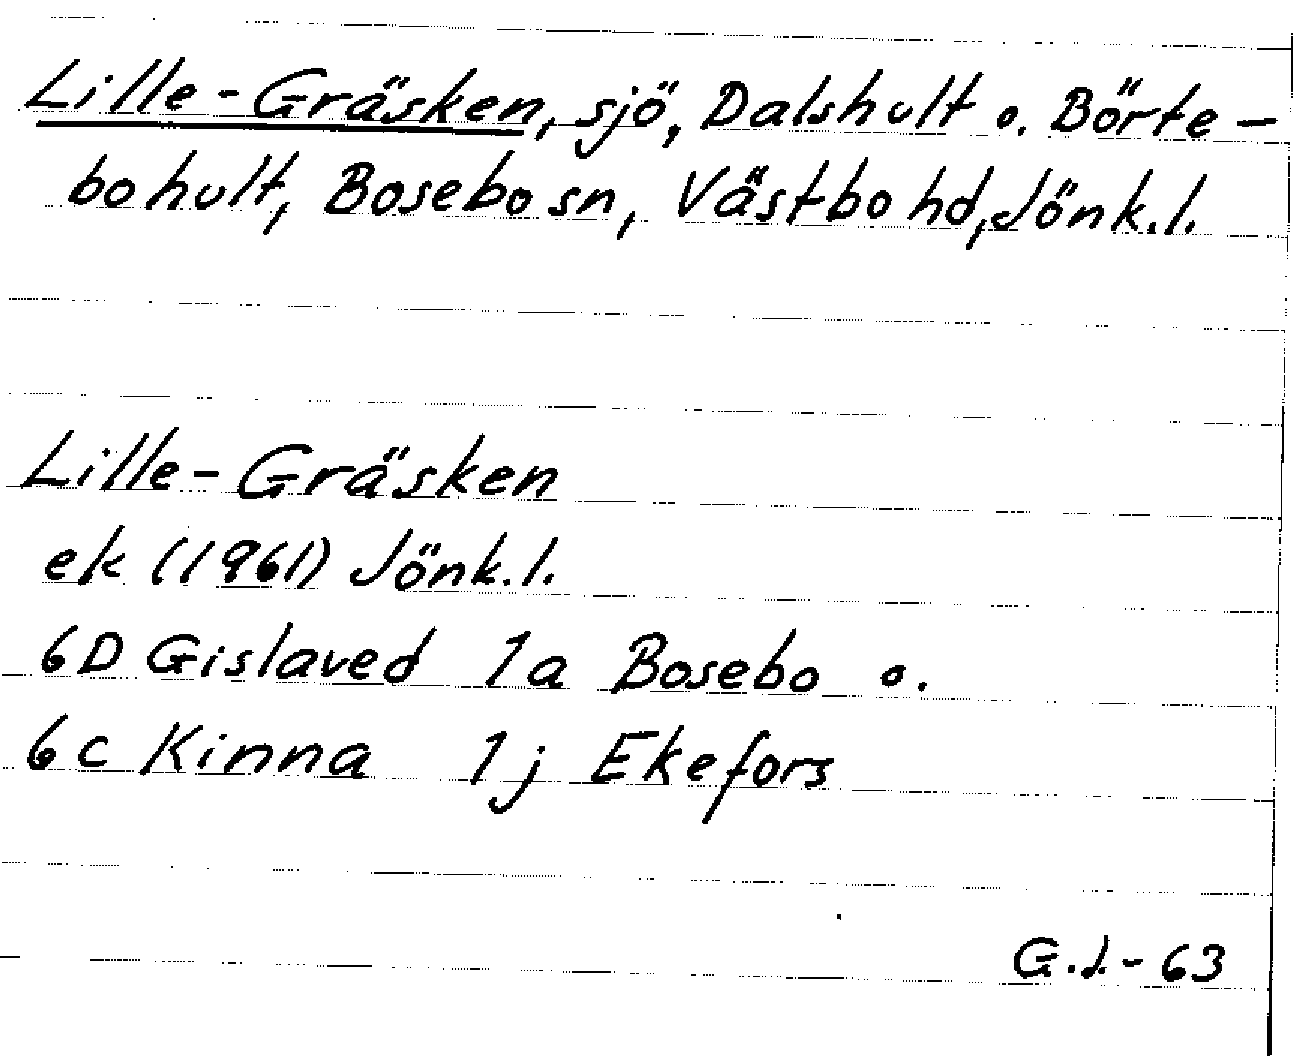 Lille-Gräsken, sjö, Dalshult o. Börte-
bohult, Bosebo sn, Västbo hd, Jönk.l.
Lille-Gräsken
ek (1961) Jönk.l.
6D Gislaved 1a Bosebo o.
6C Kinna 1j Ekefors
G.J.-63